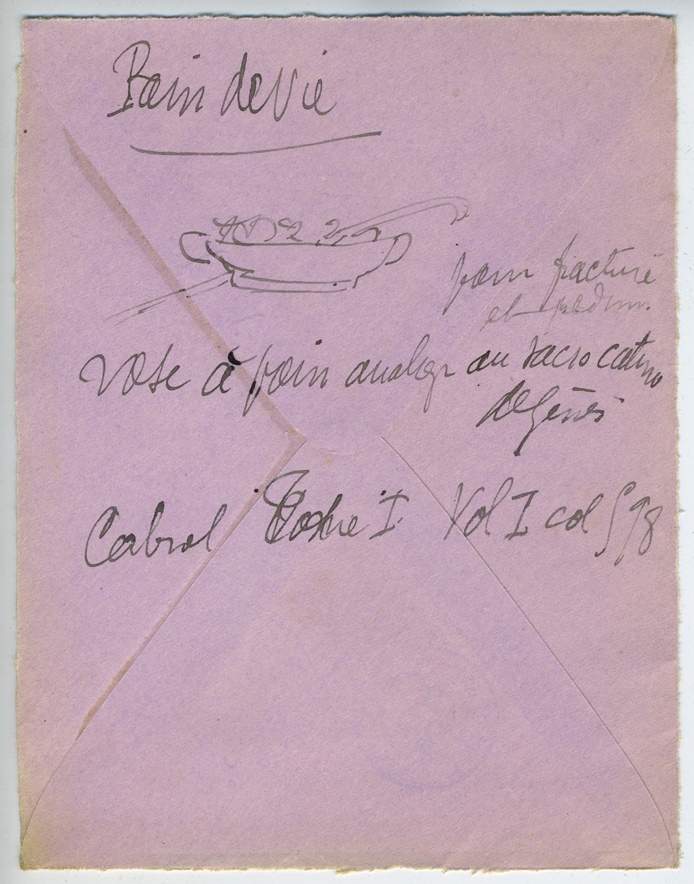 Pain de Vie
pain fracturé
et
vase à pain analogue au sacro catino
de Gênes
Cabrol Tome I Vol I col 598